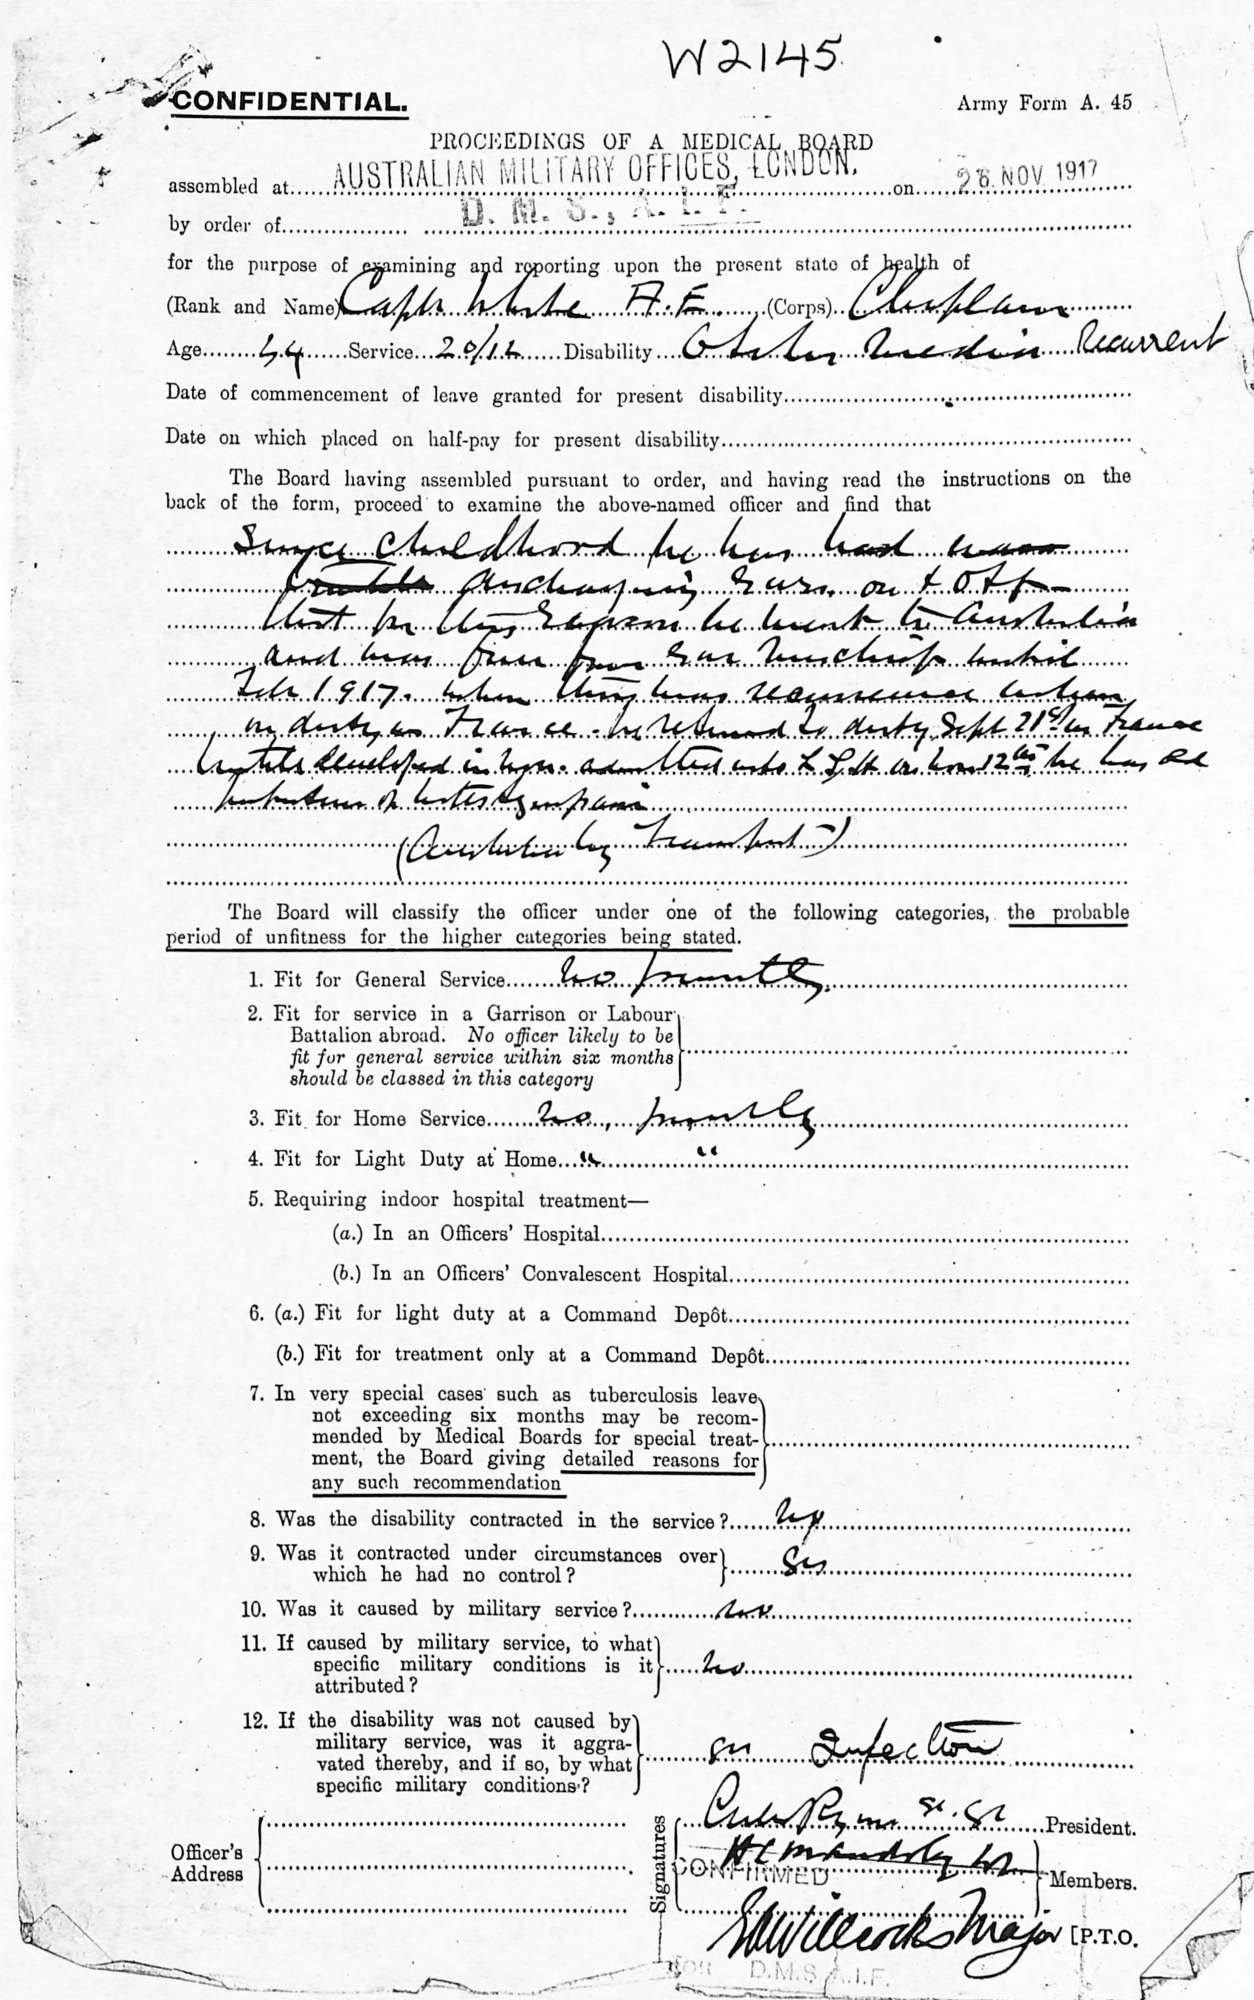 W2145
CONFIDENTIAL.
Army Form A. 45
PROCEEDINGS OF A MEDICAL BOARD
assembled at AUSTRALIAN MILITARY OFFICES, LONDON. on 28 NOV 1917
by order of D. M. S., A. I. F.
for the purpose of examining and reporting upon the present state of health of
(Rank and Name) Capt White A.E. (Corps) Chaplain
Age 44 Service 20/12 Disability Otitis Media Recurrent
Date of commencement of leave granted for present disability
Date on which placed on half-pay for present disability
The Board having assembled pursuant to order, and having read the instructions on the
back of the form, proceed to examine the above-named officer and find that
Since childhood he has had
discharging ears on & off
that for this reason he went to Australia
and was free from ear until
Feb 1917. when this was recurrence when
on duty in France. he returned to duty Sept 21st in France
developed in admitted into on Nov 12th he has
of
(Australia by Transport)
The Board will classify the officer under one of the following categories, the probable
period of unfitness for the higher categories being stated.
1. Fit for General Service no
2. Fit for service in a Garrison or Labour
Battalion abroad. No officer likely to be
fit for general service within six months
should be classed in this category
3. Fit for Home Service no,
4. Fit for Light Duty at Home " "
5. Requiring indoor hospital treatment—
(a.) In an Officers' Hospital
(b.) In an Officers' Convalescent Hospital
6. (a.) Fit for light duty at a Command Depôt
(b.) Fit for treatment only at a Command Depôt
7. In very special cases such as tuberculosis leave
not exceeding six months may be recom-
mended by Medical Boards for special treat-
ment, the Board giving detailed reasons for
any such recommendation
8. Was the disability contracted in the service? no
9. Was it contracted under circumstances over
which he had no control?
10. Was it caused by military service? no
11. If caused by military service, to what
specific military conditions is it
attributed? no
12. If the disability was not caused by
military service, was it aggra-
vated thereby, and if so, by what
specific military conditions? Infection
Officer's
Address
Signatures
President.
CONFIRMED
Members.
Willcocks Major [P.T.O.
FOR D.M.S A.I.F.